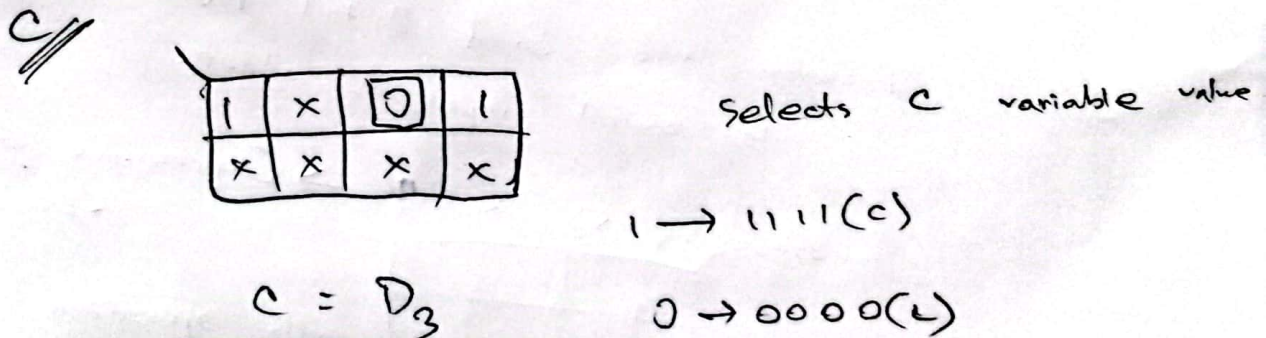 C
1 x 0 1
x x x x
Selects C variable value
1 → 1111(C)
C = D₃
0 → 0000(L)